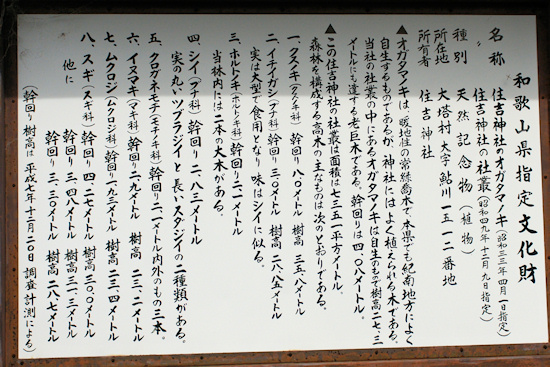 和歌山県指定文化財
名称 住吉神社のオガタマノキ(昭和三三年四月一日指定)
住吉神社の社叢(昭和四九年十二月九日指定)
種別 天然記念物(植物)
所在地 大塔村大字鮎川一五一二番地
所有者 住吉神社
▲オガタマノキは、暖地性の常緑喬木で、本県でも紀南地方によく
自生するものであるが、神社にはよく植えられる木である。
当社の社叢の中にあるオガタマノキは自生のもので樹高二七、三
メートルにも達する老巨木である。幹回りは四、〇八メートル。
▲この住吉神社の社叢は面積は七三五一平方メートル、
森林を構成する高木の主なものは次のとおりである。
一、クスノキ(クスノキ科) 幹回り 八、〇メートル 樹高 三五、八メートル
二、イチイガシ(ブナ科) 幹回り 三、一〇メートル 樹高 二八、八五メートル
実は大型で食用となり味はシイに似る。
三、ホルトノキ(ホルトノキ科) 幹回り 二、一メートル
当林内には二本の大木がある。
四、シイ(ブナ科) 幹回り 二、八三メートル
実の丸いツブラジイと長いスダジイの二種類がある。
五、クロガネモチ(モチノキ科) 幹回り 二、一メートル内外のもの三本。
六、イヌマキ(マキ科) 幹回り 二、九メートル 樹高 二三、二メートル
七、ムクロジ(ムクロジ科) 幹回り 一、九三メートル 樹高 二三、四メートル
八、スギ(スギ科) 幹回り 四、二七メートル 樹高 三〇、〇メートル
他に 幹回り 三、四八メートル 樹高 三一、三メートル
幹回り 三、三〇メートル 樹高 二八、七メートル
(幹回り 樹高は 平成七年十二月二〇日 調査 計測による)